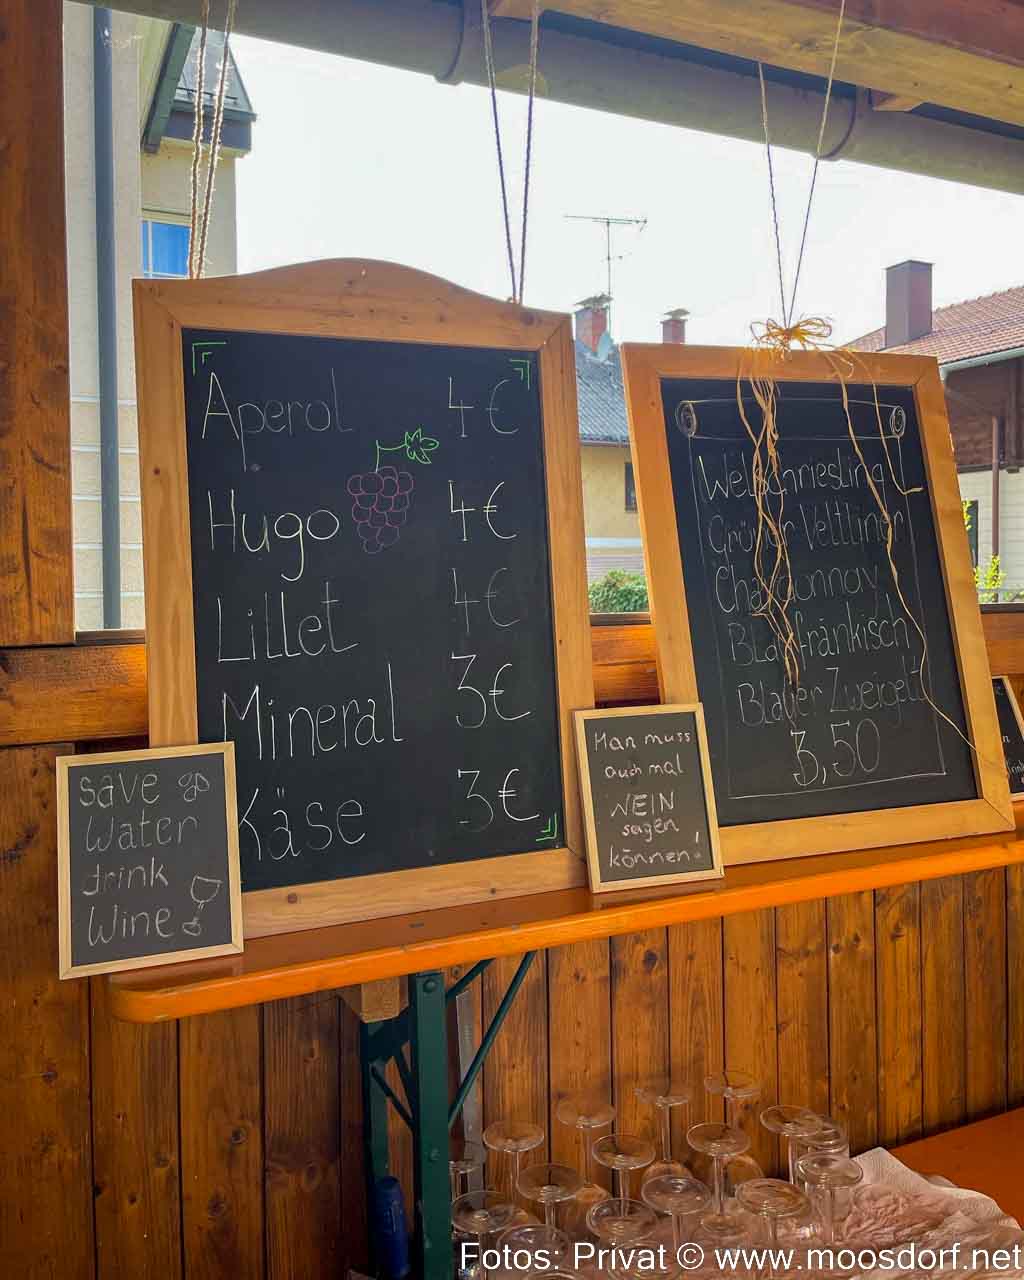 Aperol 4€
Hugo 4€
Lillet 4€
Mineral 3€
Käse 3€
save
Water
drink
Wine
Man muss
auch mal
NEIN
sagen
können!
Welschriesling
Grüner Veltliner
Chardonnay
Blaufränkisch
Blauer Zweigelt
3,50
Fotos: Privat © www.moosdorf.net